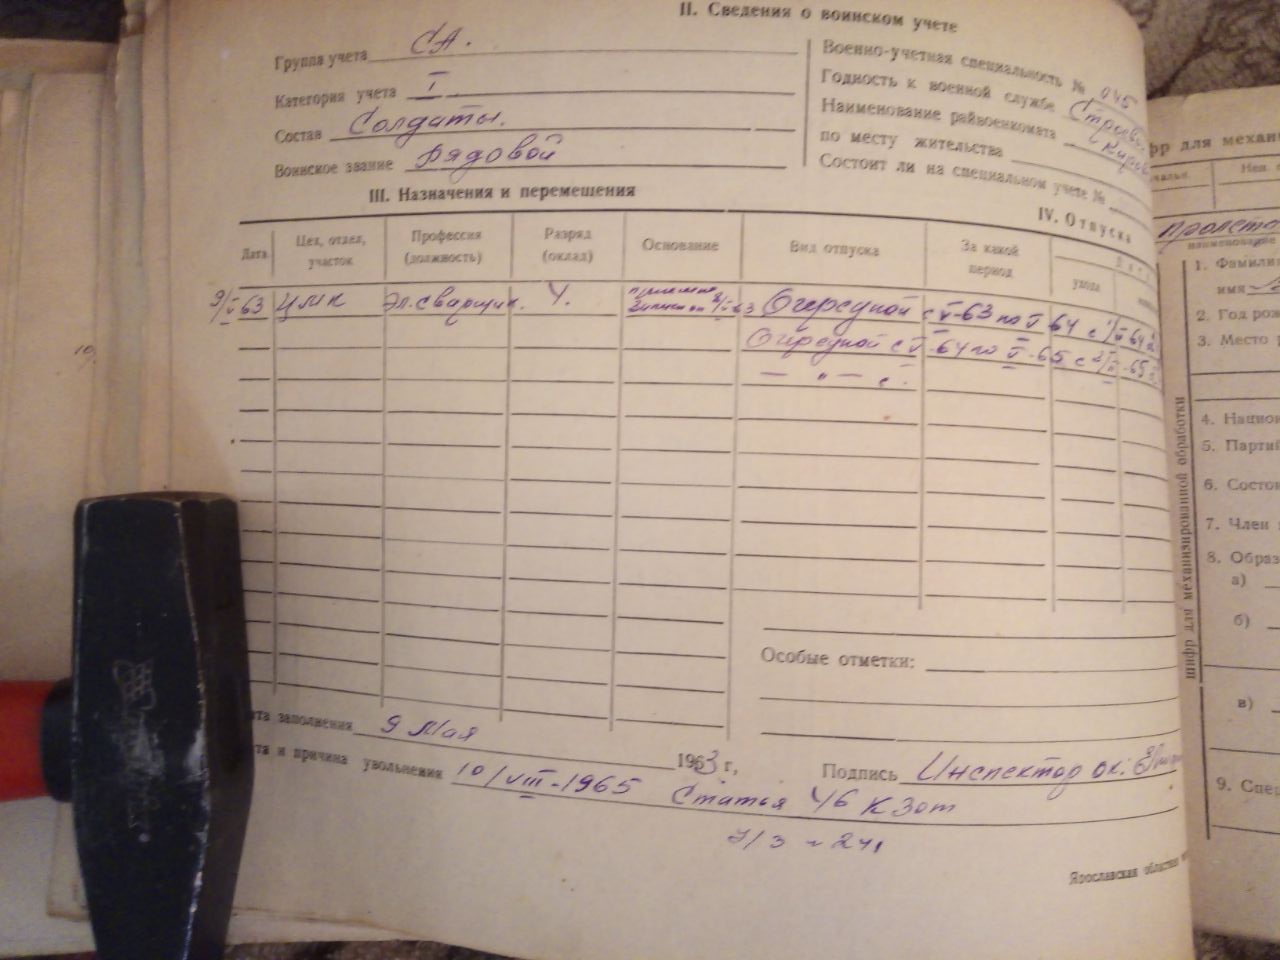 II. Сведения о воинском учете
Группа учета СА.
Категория учета I
Состав Солдаты.
Воинское звание Рядовой
Военно-учетная специальность №
Годность к военной службе
Наименование райвоенкомата
по месту жительства
Состоит ли на специальном учете №
III. Назначения и перемещения
IV. Отпуска
Дата
Цех, отдел, участок
Профессия (должность)
Разряд (оклад)
Основание
Вид отпуска
За какой период
ухода
9/V 63 ЦМК Эл.сварщик. 4.
Очередной с V-63 по V 64
Очередной с V-64 по V-65
— " — с
Особые отметки:
заполнения 9 Мая 1963 г,
и причина увольнения 10/VIII-1965 Статья 46 КЗот
Подпись Инспектор ок:
Ярославская
для механи
шифр для механизированной обработки
1. Фамилия
имя
2. Год рож
3. Место
4. Национ
5. Партий
6. Состои
7. Член
8. Образ
а)
б)
в)
9. Спец